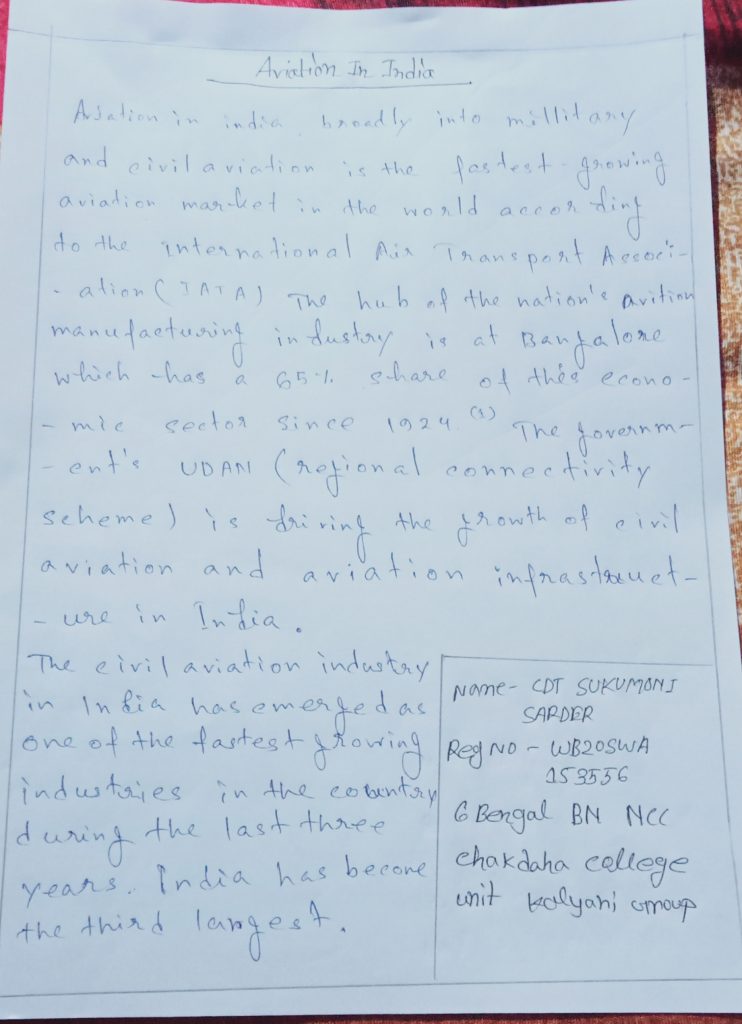 Aviation In India
Aviation in india broadly into millitary
and civil aviation is the fastest-growing
aviation market in the world according
to the international Air Transport Associ-
- ation (IATA) The hub of the nation's avition
manufacturing industry is at Bangalore
which has a 65% share of this econo-
- mic sector since 1924. (1) The governm-
- ent's UDAN (regional connectivity
scheme) is driving the growth of civil
aviation and aviation infrastruct-
- ure in India.
The civil aviation industry
in India has emerged as
one of the fastest growing
industries in the country
during the last three
years. India has become
the third largest.
Name - CDT SUKUMONI
SARDER
Reg NO - WB20SWA
153556
6 Bengal BN NCC
chakdaha college
unit kalyani group